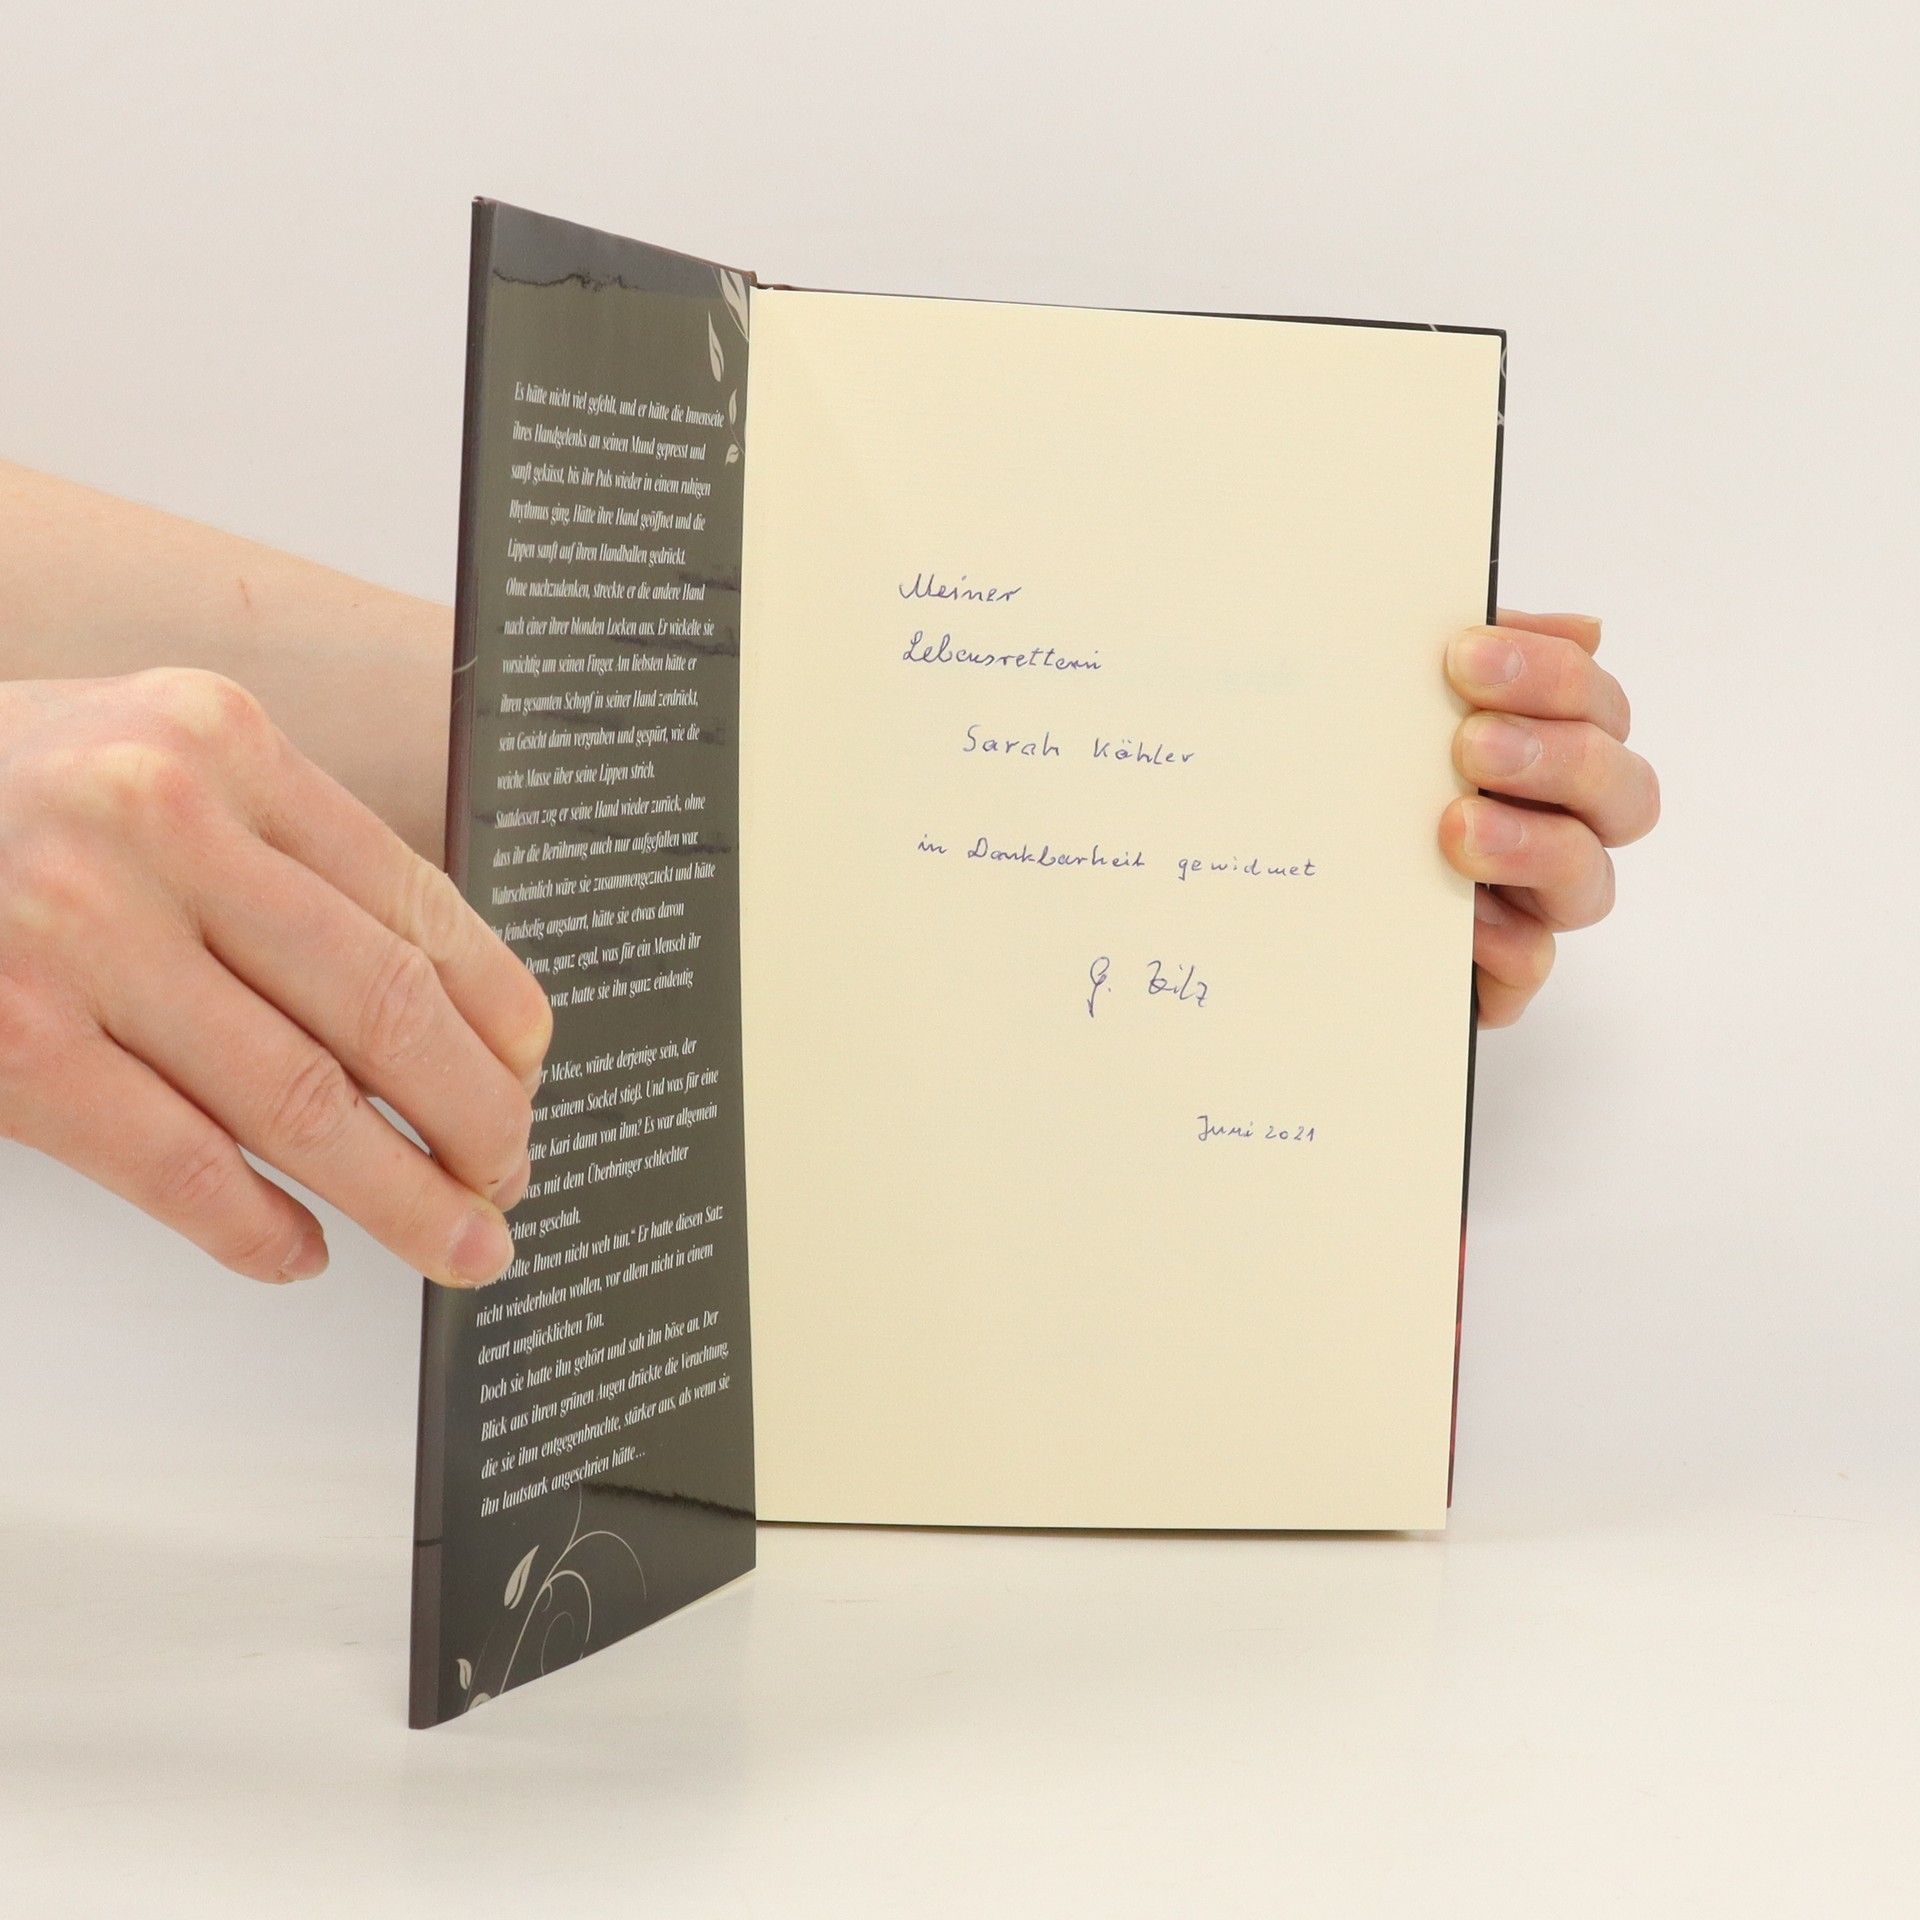 Es hätte nicht viel gefehlt, und er hätte die Innenseite
ihres Handgelenks an seinen Mund gepresst und
sanft geküsst, bis ihr Puls wieder in einem ruhigen
Rhythmus ging. Hätte ihre Hand geöffnet und die
Lippen sanft auf ihren Handballen gedrückt.
Ohne nachzudenken, streckte er die andere Hand
nach einer ihrer blonden Locken aus. Er wickelte sie
vorsichtig um seinen Finger. Am liebsten hätte er
ihren gesamten Schopf in seiner Hand zerdrückt,
sein Gesicht darin vergraben und gespürt, wie die
weiche Masse über seine Lippen strich.
Stattdessen zog er seine Hand wieder zurück, ohne
dass ihr die Berührung auch nur aufgefallen war.
Wahrscheinlich wäre sie zusammengezuckt und hätte
ihn feindselig angstarrt, hätte sie etwas davon
Denn, ganz egal, was für ein Mensch ihr
war, hatte sie ihn ganz eindeutig
McKee, würde derjenige sein, der
von seinem Sockel stieß. Und was für eine
hätte Kari dann von ihm? Es war allgemein
was mit dem Überbringer schlechter
geschah.
wollte Ihnen nicht weh tun.“ Er hatte diesen Satz
nicht wiederholen wollen, vor allem nicht in einem
derart unglücklichen Ton.
Doch sie hatte ihn gehört und sah ihn böse an. Der
Blick aus ihren grünen Augen drückte die Verachtung,
die sie ihm entgegenbrachte, stärker aus, als wenn sie
ihn lautstark angeschrien hätte...
Meiner
Lebensretterin
Sarah Köhler
in Dankbarkeit gewidmet
G. Zilz
Juni 2021